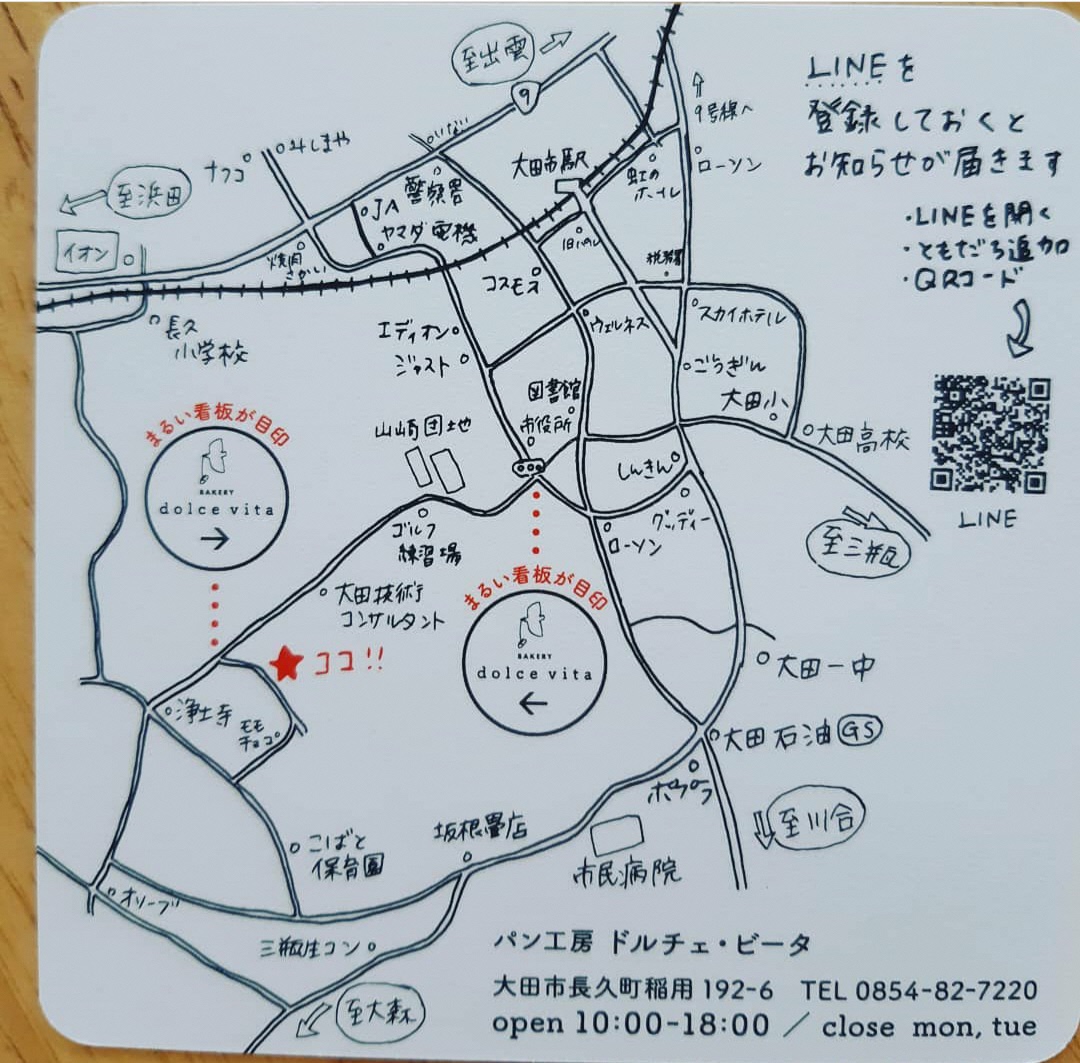 至出雲
9
LINEを
登録しておくと
お知らせが届きます
9号線へ
ローソン
・LINEを開く
・ともだち追加
・QRコード
LINE
いない
みしまや
ナフコ
大田市駅
虹の
ホール
警察署
JA
ヤマダ電機
至浜田
イオン
焼肉
さかい
税務署
コスモス
スカイホテル
ウェルネス
長久
小学校
エディオン
ジャスト
ごうぎん
大田小
大田高校
図書館
市役所
山崎団地
しんきん
グッディー
ローソン
至三瓶
まるい看板が目印
BAKERY
dolce vita
→
ゴルフ
練習場
大田技術
コンサルタント
まるい看板が目印
BAKERY
dolce vita
←
★ココ!!
大田一中
浄土寺
モモ
チョコ
大田石油GS
ポプラ
至川合
坂根畳店
こばと
保育園
市民病院
オリーブ
三瓶生コン
至大森
パン工房 ドルチェ・ビータ
大田市長久町稲用 192-6 TEL 0854-82-7220
open 10:00-18:00 / close mon, tue